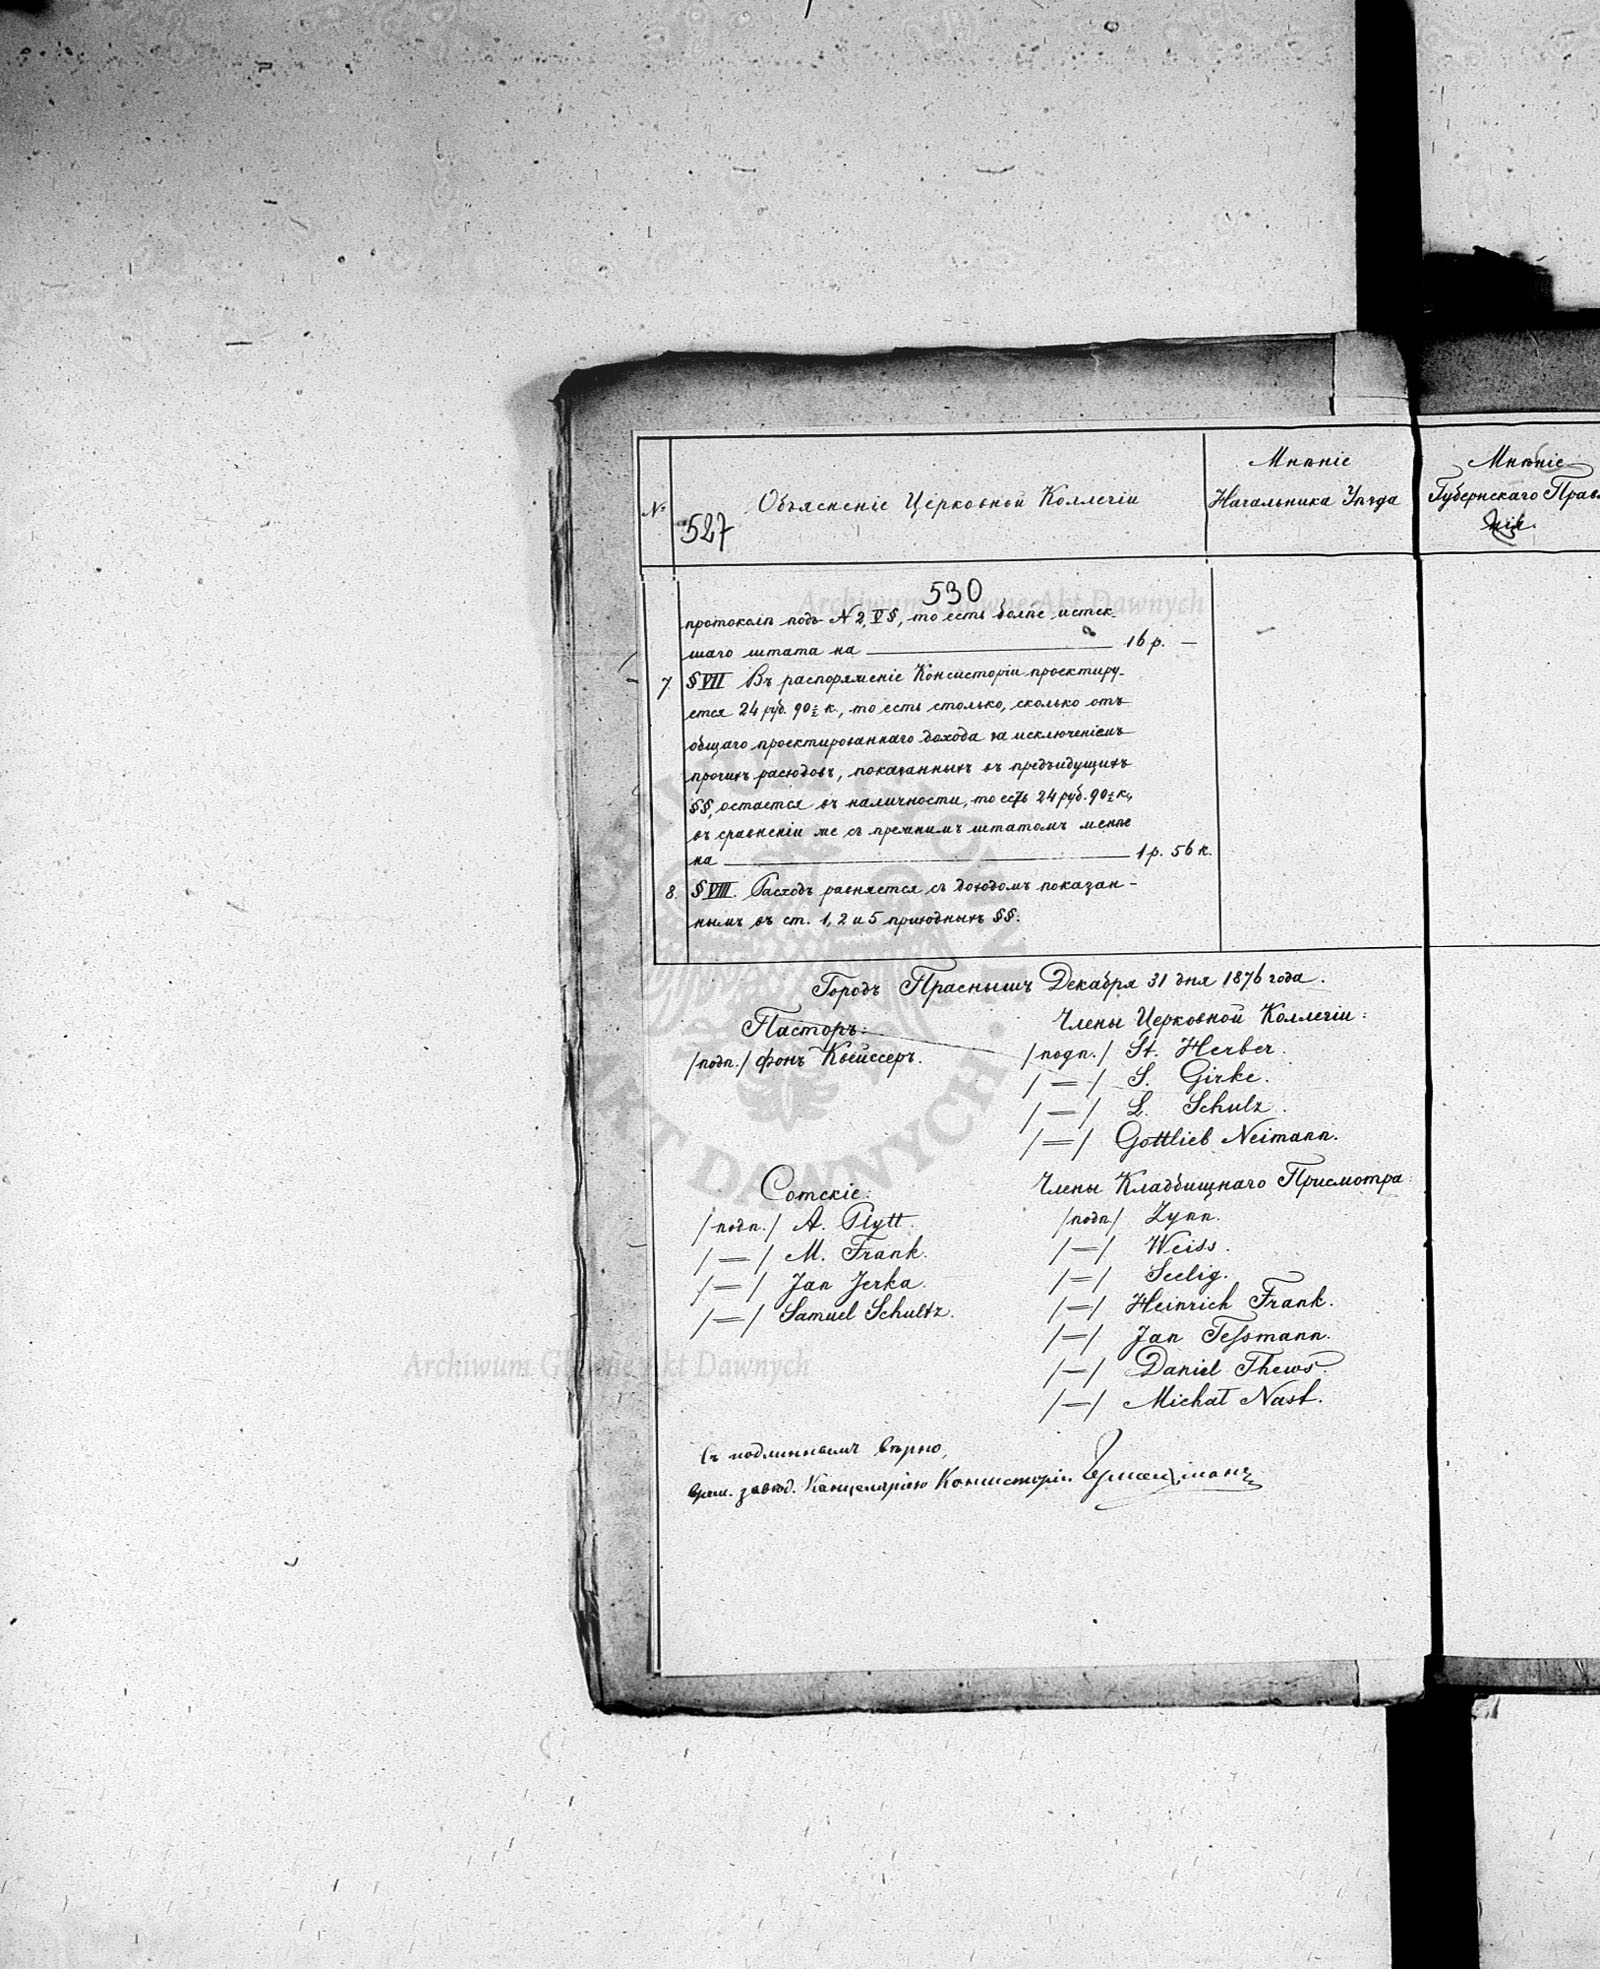 №
527
Объясненіе Церковной Коллегіи
Мнѣніе
Начальника Уѣзда
Мнѣніе
Губернскаго Прав
нія.
530
протоколѣ подъ N 2, V §, то есть болѣе истек-
шаго штата на 16 р. —
7. § VII Въ распоряженіе Консисторіи проектиру-
ется 24 руб. 90½ к., то есть столько, сколько отъ
общаго проектированнаго дохода за исключеніемъ
прочихъ расходовъ, показанныхъ въ предъидущихъ
§§, остается въ наличности, то есть 24 руб. 90½ к.,
въ сравненіи же съ прежнимъ штатомъ менѣе
на 1 р. 56 к.
8. § VIII. Расходъ равняется съ доходомъ показан-
нымъ въ ст. 1, 2 и 5 приходныхъ §§.
Городъ Праснышъ Декабря 31 дня 1876 года.
Пасторъ:
/подп./ фонъ Квейссеръ.
Члены Церковной Коллегіи:
/подп./ St. Herber.
/=/ S. Girke.
/=/ L. Schulz.
/=/ Gottlieb Neimann.
Сотскіе:
/подп./ A. Plytt.
/=/ M. Frank.
/=/ Jan Jerka.
/=/ Samuel Schultz.
Члены Кладбищнаго Присмотра:
/подп/ Zynn.
/=/ Weiss.
/=/ Seelig.
/=/ Heinrich Frank.
/=/ Jan Teſsmann.
/=/ Daniel Thews.
/=/ Michał Nast.
Съ подлиннымъ вѣрно,
Врем. завѣд. Канцеляріею Консисторіи
Archiwum Główne Akt Dawnych
Archiwum Główne Akt Dawnych
ARCHIWUM GŁÓWNE AKT DAWNYCH